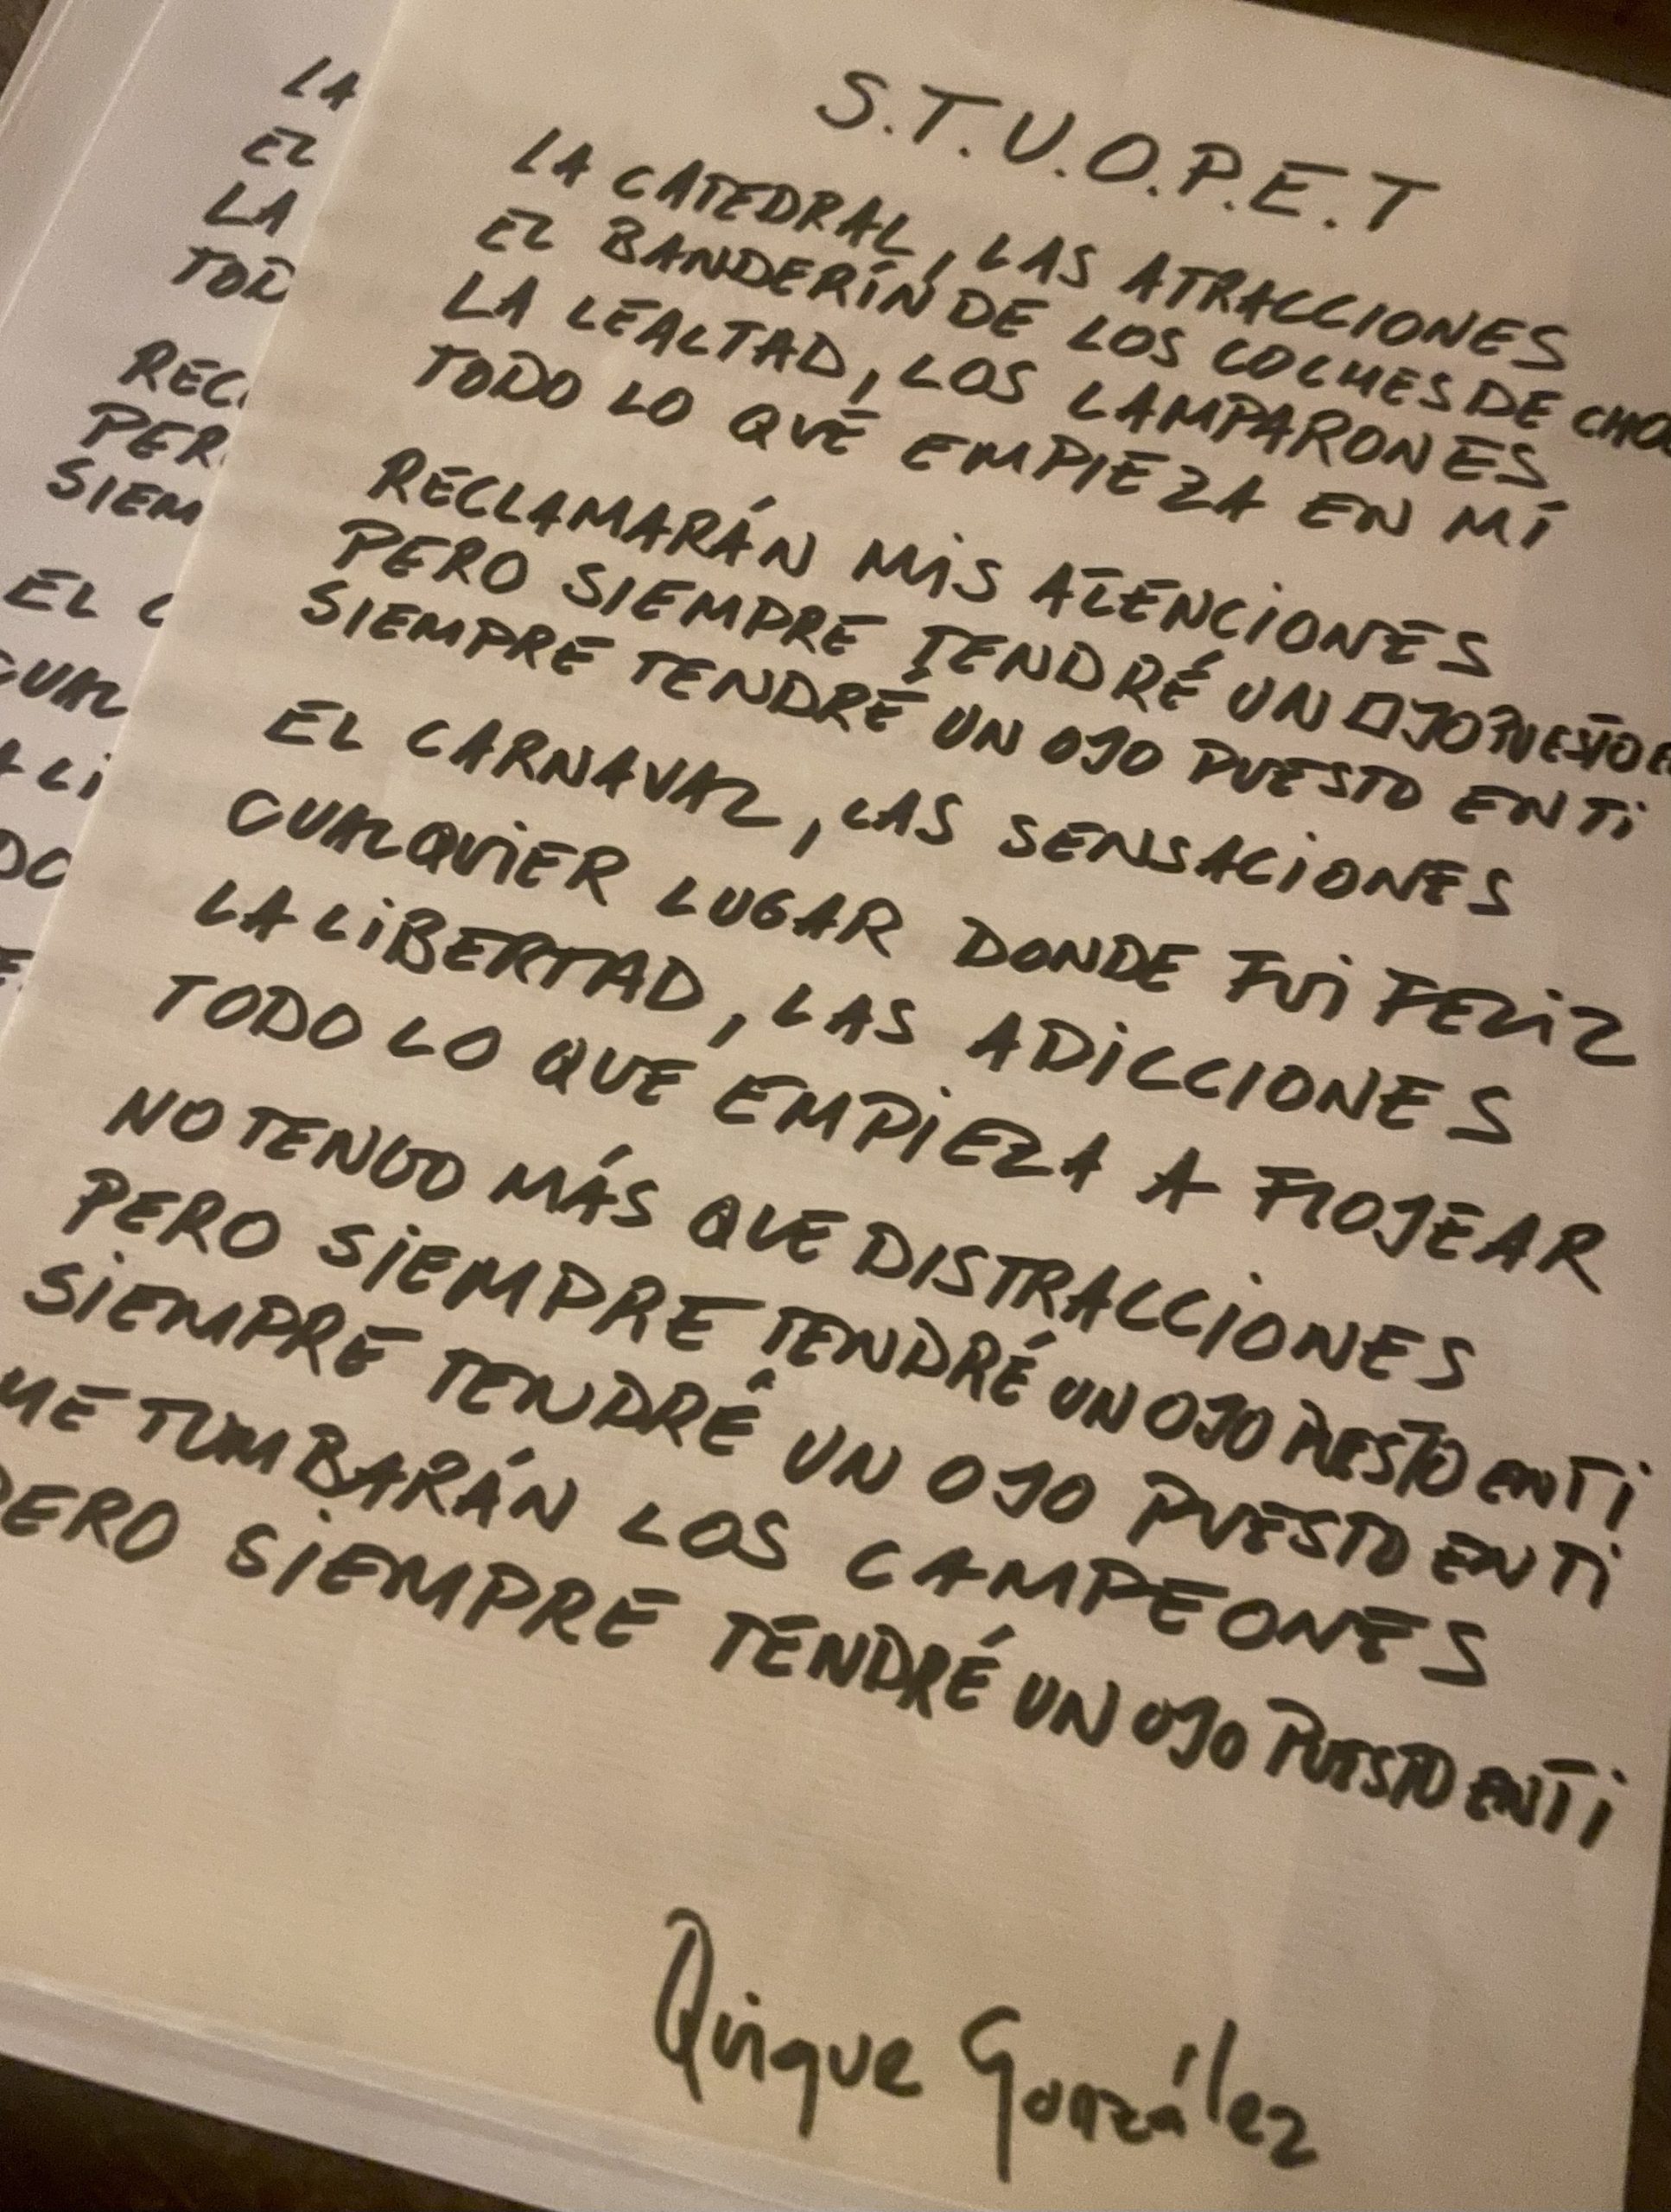 S.T.U.O.P.E.T
LA CATEDRAL, LAS ATRACCIONES
EL BANDERÍN DE LOS COCHES DE CHO
LA LEALTAD, LOS LAMPARONES
TODO LO QUE EMPIEZA EN MÍ
RECLAMARÁN MIS ATENCIONES
PERO SIEMPRE TENDRÉ UN OJO PUESTO E
SIEMPRE TENDRÉ UN OJO PUESTO EN TI
EL CARNAVAL, LAS SENSACIONES
CUALQUIER LUGAR DONDE FUI FELIZ
LA LIBERTAD, LAS ADICCIONES
TODO LO QUE EMPIEZA A FLOJEAR
NO TENGO MÁS QUE DISTRACCIONES
PERO SIEMPRE TENDRÉ UN OJO PUESTO EN TI
SIEMPRE TENDRÉ UN OJO PUESTO EN TI
ME TUMBARÁN LOS CAMPEONES
PERO SIEMPRE TENDRÉ UN OJO PUESTO EN TI
Quique González
LA
EL
LA
TOD
REC
PER
SIEM
EL C
CUAL
A LI
DO
E